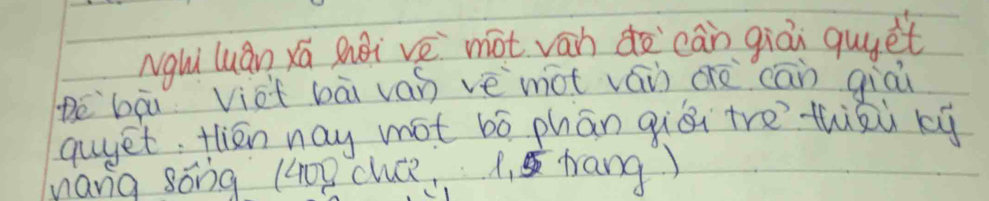 Nghị luận xã hội về một vấn đề cần giải quyết
Đề bài: Viết bài văn về một vấn đề cần giải
quyết. Hiện nay một bộ phận giới trẻ thiếu kỹ
năng sống (400 chữ, 1,5 trang)